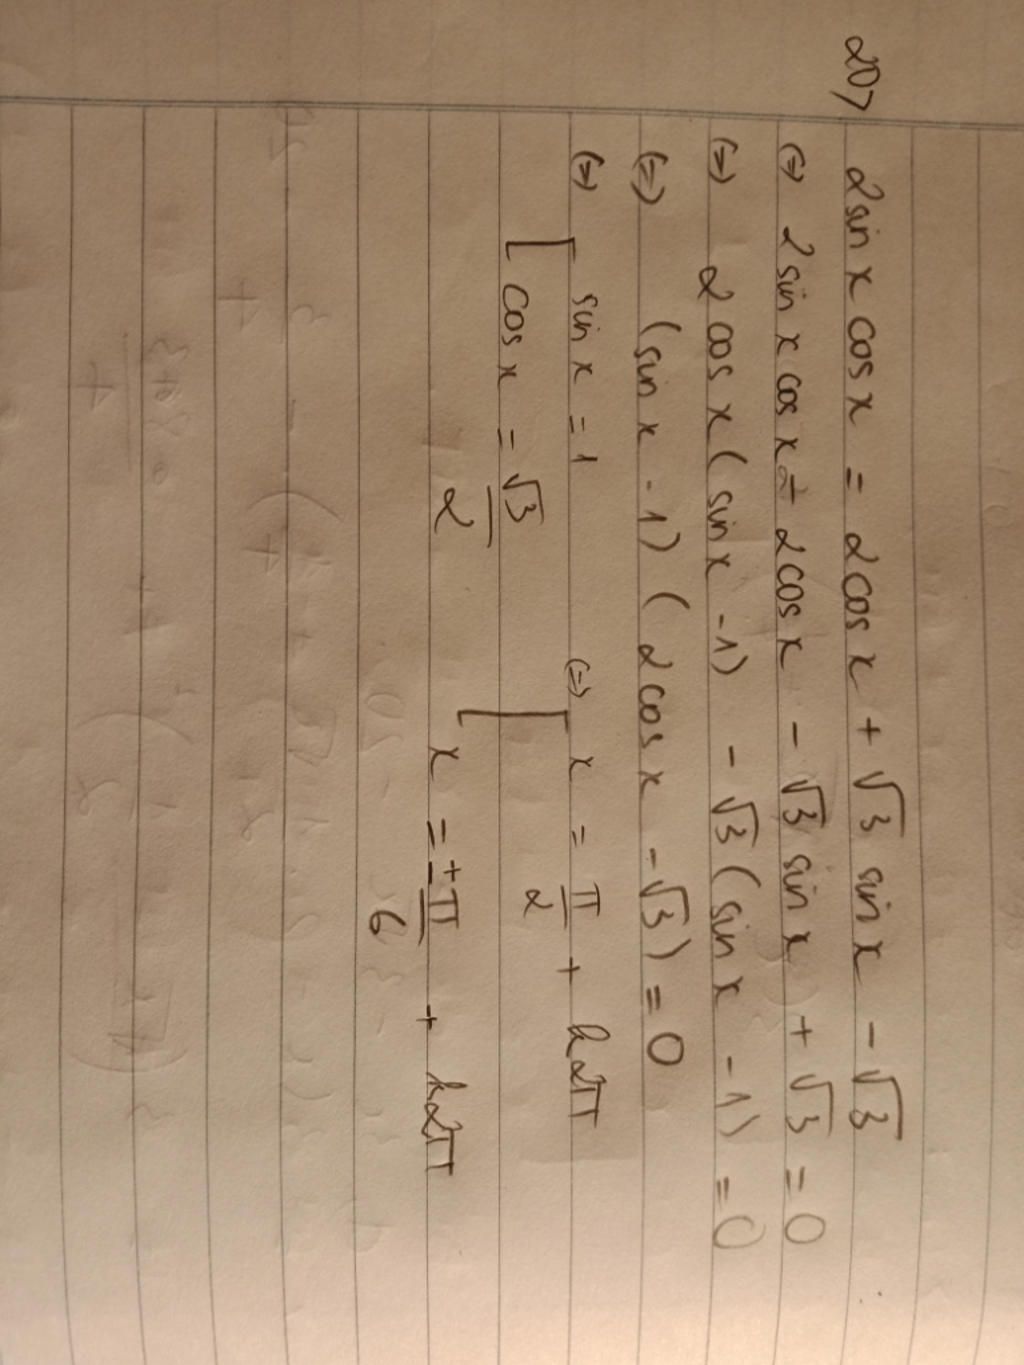 20> 2sin x cos x = 2cos x + √3 sin x - √3
(=) 2sin x cos x - 2cos x - √3 sin x + √3 = 0
(=) 2 cos x (sin x - 1) - √3 (sin x - 1) = 0
(=) (sin x - 1) (2cos x - √3) = 0
(=) [ sin x = 1 (=) [ x = π/2 + k2π
cos x = √3/2 x = ±π/6 + k2π